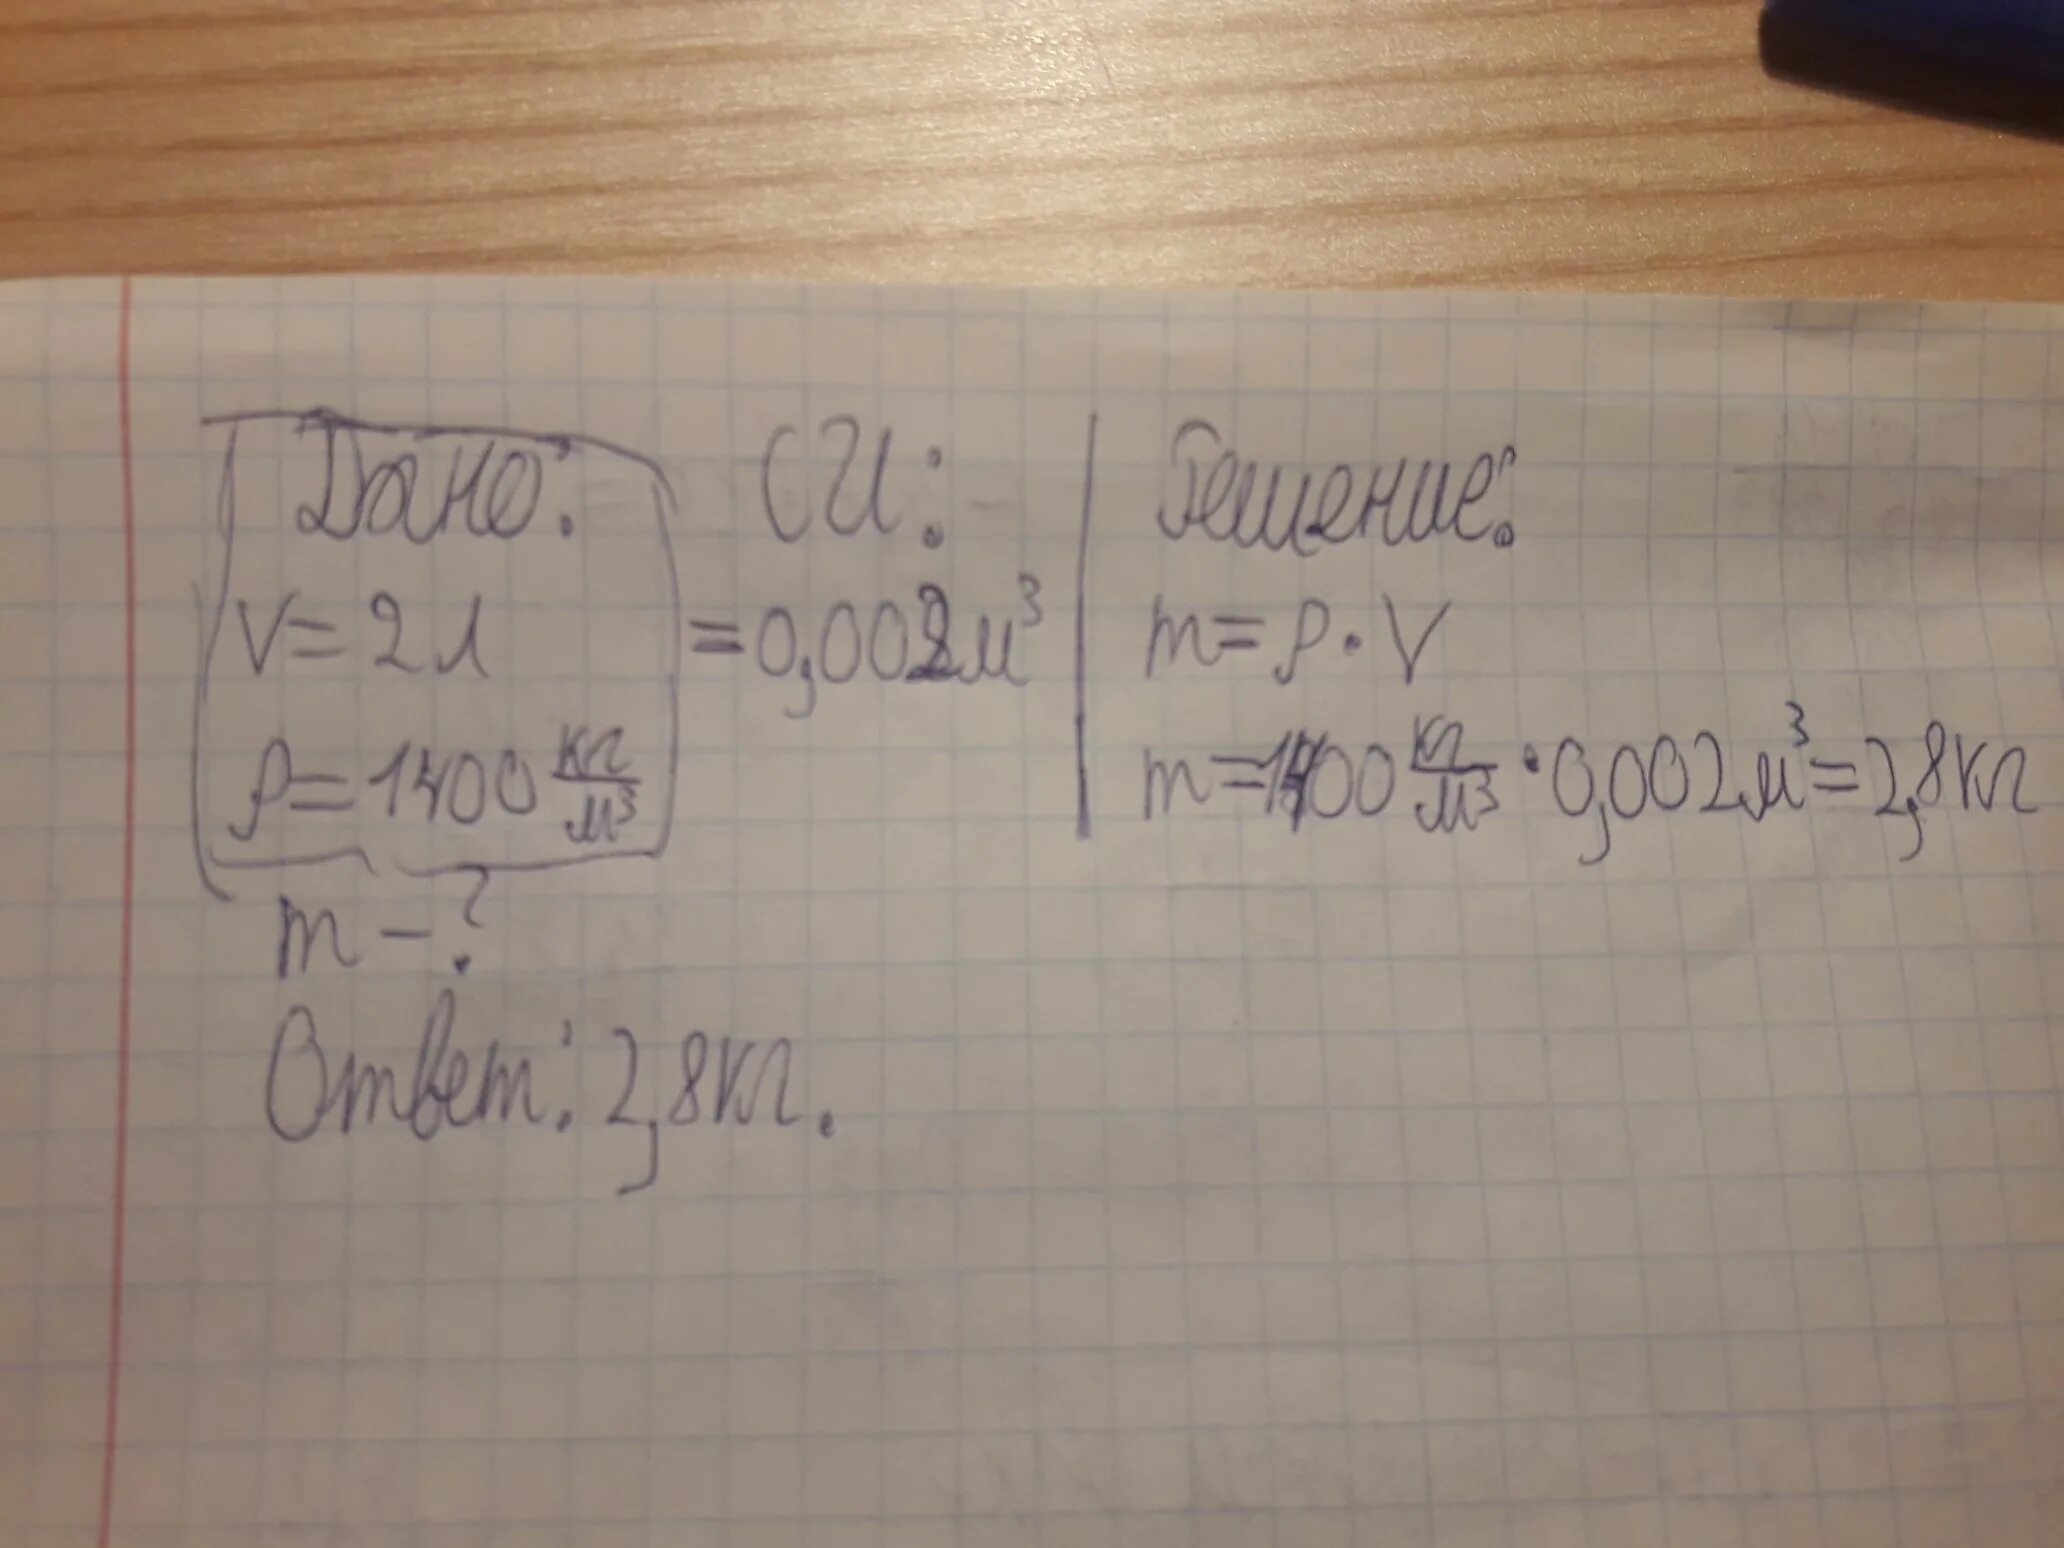 Дано:
V=2л
ρ=1400 кг/м³
m-?
СИ:
=0,002м³
Решение:
m=ρ·V
m=1400 кг/м³ · 0,002м³=2,8кг
Ответ: 2,8кг.